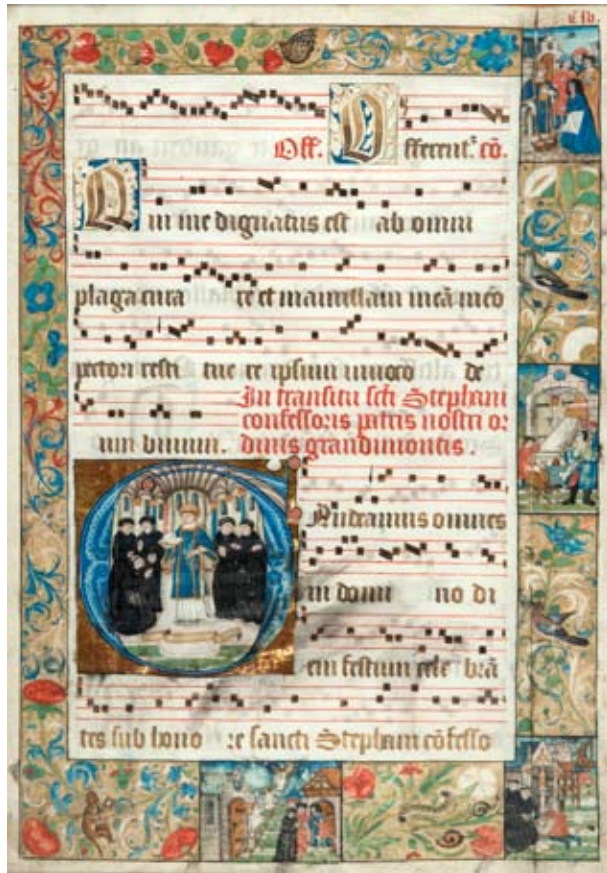 Off. Offerent̾. cō.
Qui me dignatus est ab omni
plaga cura re et mamillam meā meo
pectori resti tue re ipsum invoco de
um vivum.
In transitu scti Stephani
confessoris patris nostri or
dinis grandimontis.
Gaudeamus omnes
in domi no di
em festum cele brā
tes sub hono re sancti Stephani cōfesso